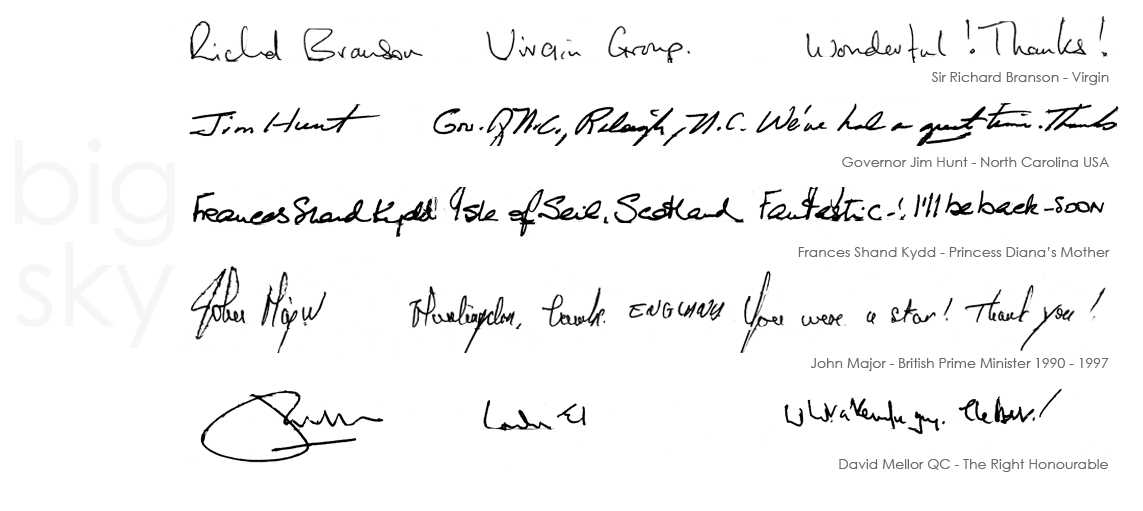 big sky
Richd Branson Virgin Group. Wonderful! Thanks!
Sir Richard Branson - Virgin
Jim Hunt Gov. of N.C., Raleigh, N.C. We've had a great time. Thanks
Governor Jim Hunt - North Carolina USA
Frances Shand Kydd Isle of Seil, Scotland Fantastic -! I'll be back - SOON
Frances Shand Kydd - Princess Diana's Mother
John Major Huntingdon, Cambs. ENGLAND You were a star! Thank you!
John Major - British Prime Minister 1990 - 1997
London E1
David Mellor QC - The Right Honourable